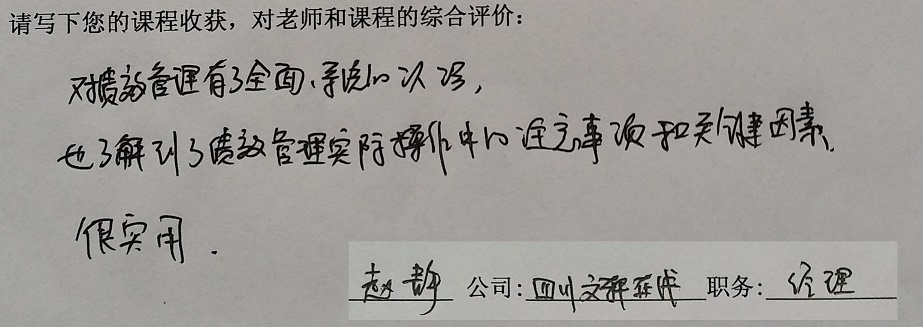 请写下您的课程收获，对老师和课程的综合评价：
对绩效管理有了全面、系统的认识，
也了解到了绩效管理实际操作中的注意事项和关键因素。
很实用．
赵静 公司：四川文轩在线 职务：经理